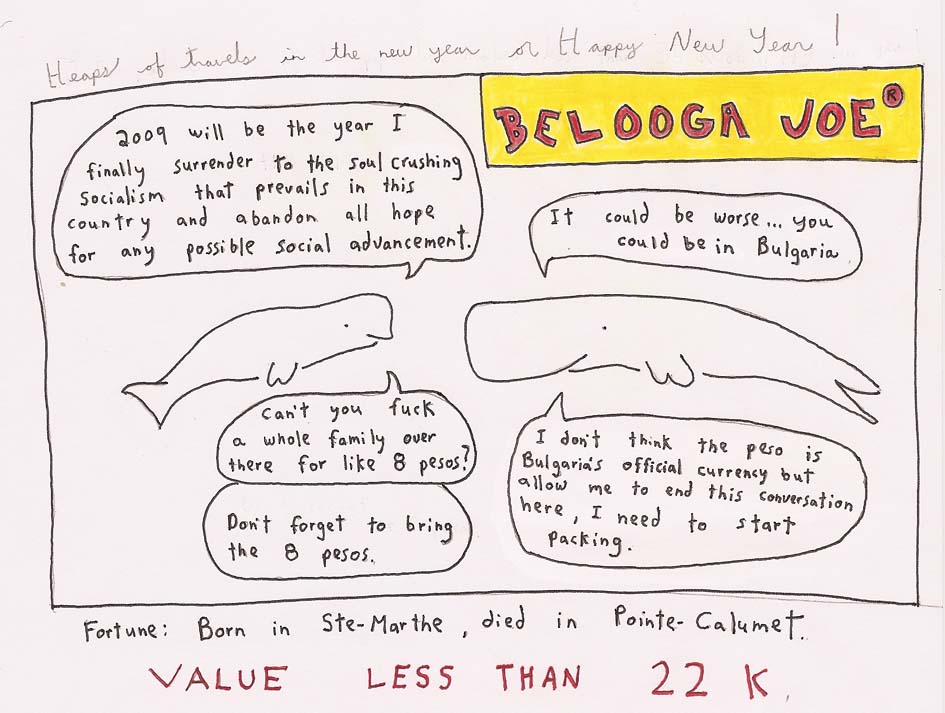 Heaps of travels in the new year or Happy New Year!
BELOOGA JOE®
2009 will be the year I
finally surrender to the soul crushing
socialism that prevails in this
country and abandon all hope
for any possible social advancement.
It could be worse... you
could be in Bulgaria
Can't you fuck
a whole family over
there for like 8 pesos?
Don't forget to bring
the 8 pesos.
I don't think the peso is
Bulgaria's official currency but
allow me to end this conversation
here, I need to start
packing.
Fortune: Born in Ste-Marthe, died in Pointe-Calumet.
VALUE LESS THAN 22 K.